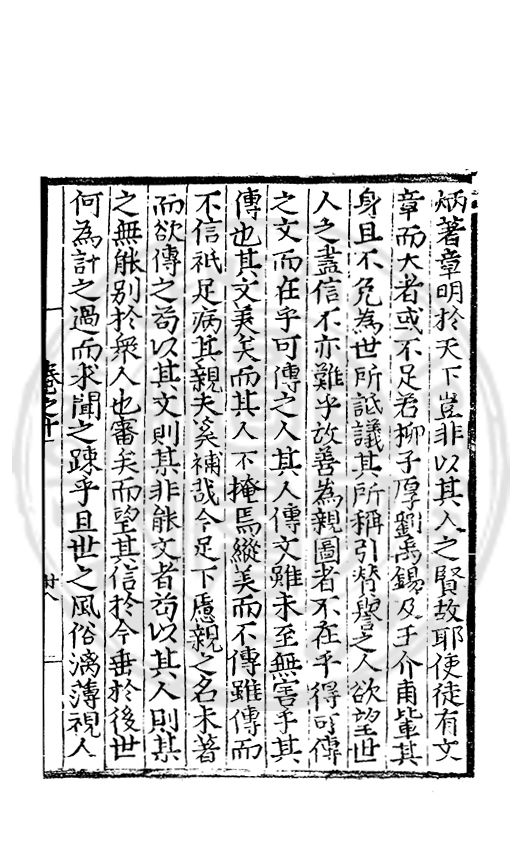 炳著章明於天下豈非以其人之賢故耶使徒有文
章而大者或不足若柳子厚劉禹錫及王介甫軰其
身且不免為世所詆議其所稱引賛譽之人欲望世
人之盡信不亦難乎故善為親圖者不在乎得可傳
之文而在乎可傳之人其人傳文雖未至無害乎其
傳也其文羙矣而其人不掩焉縱美而不傳雖傳而
不信祇足病其親夫奚補哉今足下慮親之名未著
而欲傳之茍以其文則某非能文者茍以其人則某
之無能别於衆人也審矣而望其信於今垂於後世
何為計之過而求聞之踈乎且世之風俗漓薄視人
卷之十一
廿八